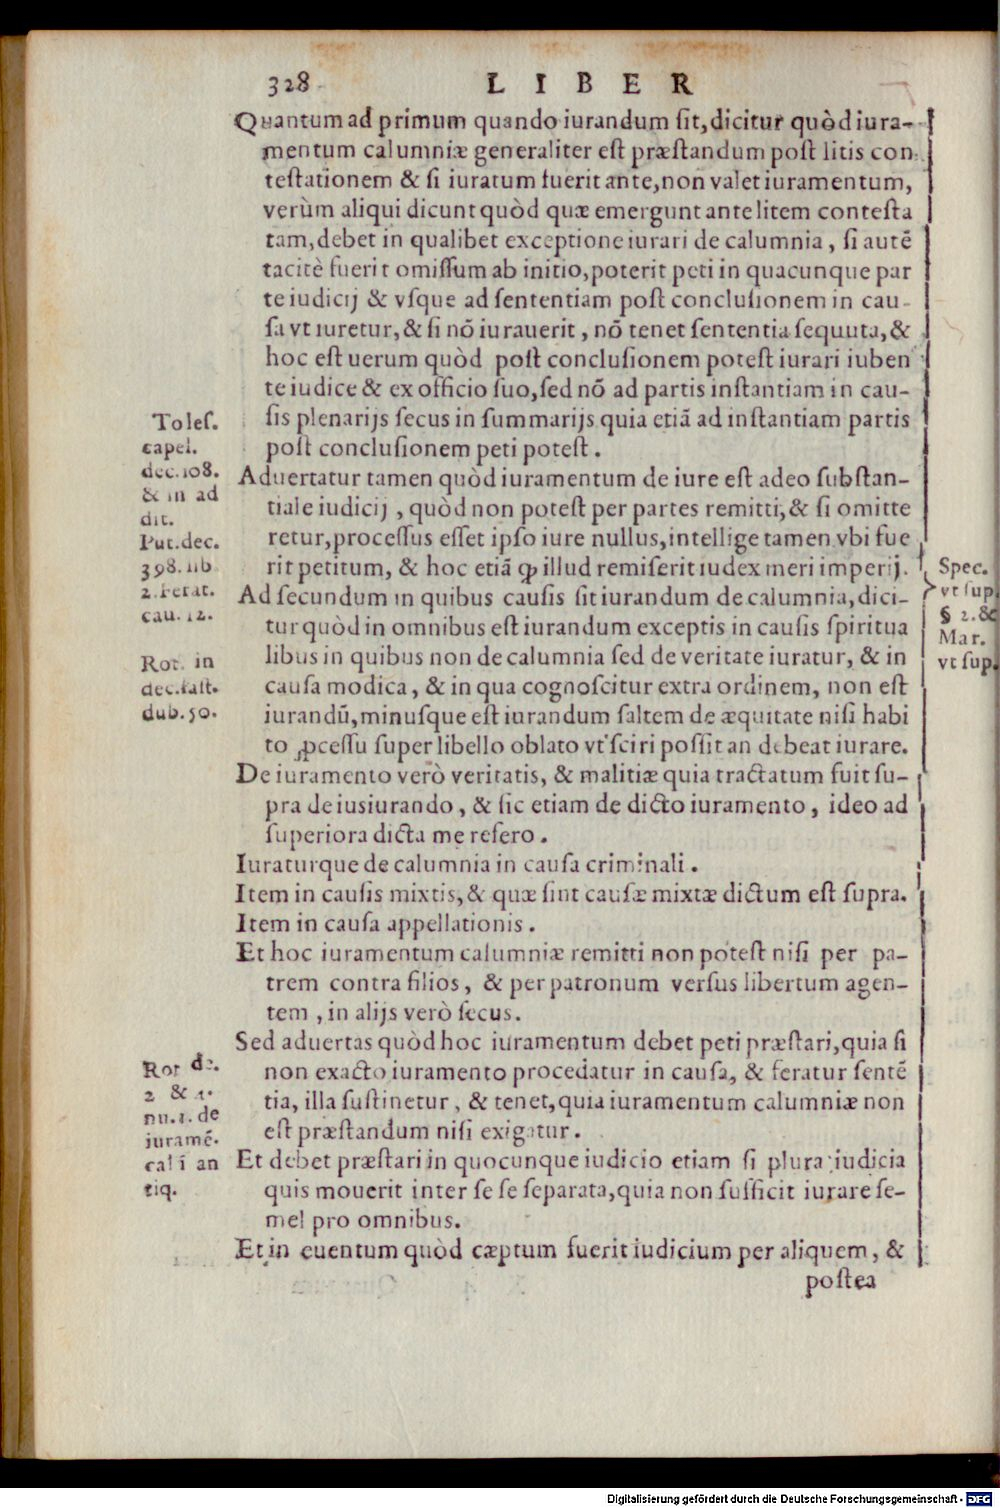 328 LIBER
Quantum ad primum quando iurandum sit, dicitur quòd iura-
mentum calumniæ generaliter est præstandum post litis con
testationem & si iuratum fuerit ante, non valet iuramentum,
verùm aliqui dicunt quòd quæ emergunt ante litem contesta
tam, debet in qualibet exceptione iurari de calumnia, si autē
tacitè fuerit omissum ab initio, poterit peti in quacunque par
te iudicij & vsque ad sententiam post conclusionem in cau-
sa vt iuretur, & si nō iurauerit, nō tenet sententia sequuta, &
hoc est uerum quòd post conclusionem potest iurari iuben
te iudice & ex officio suo, sed nō ad partis instantiam in cau-
sis plenarijs secus in summarijs quia etiā ad instantiam partis
post conclusionem peti potest.
Aduertatur tamen quòd iuramentum de iure est adeo substan-
tiale iudicij, quòd non potest per partes remitti, & si omitte
retur, processus esset ipso iure nullus, intellige tamen vbi fue
rit petitum, & hoc etiā ꝙ illud remiserit iudex meri imperij.
Ad secundum in quibus causis sit iurandum de calumnia, dici-
tur quòd in omnibus est iurandum exceptis in causis spiritua
libus in quibus non de calumnia sed de veritate iuratur, & in
causa modica, & in qua cognoscitur extra ordinem, non est
iurandū, minusque est iurandum saltem de æquitate nisi habi
to ꝓcessu super libello oblato vt sciri possit an debeat iurare.
De iuramento verò veritatis, & malitiæ quia tractatum fuit su-
pra de iusiurando, & sic etiam de dicto iuramento, ideo ad
superiora dicta me refero.
Iuraturque de calumnia in causa criminali.
Item in causis mixtis, & quæ sint causæ mixtæ dictum est supra.
Item in causa appellationis.
Et hoc iuramentum calumniæ remitti non potest nisi per pa-
trem contra filios, & per patronum versus libertum agen-
tem, in alijs verò secus.
Sed aduertas quòd hoc iuramentum debet peti præstari, quia si
non exacto iuramento procedatur in causa, & feratur sentē
tia, illa sustinetur, & tenet, quia iuramentum calumniæ non
est præstandum nisi exigatur.
Et debet præstari in quocunque iudicio etiam si plura iudicia
quis mouerit inter se se separata, quia non sufficit iurare se-
mel pro omnibus.
Et in euentum quòd cæptum fuerit iudicium per aliquem, &
postea
Toles.
capel.
dec. 108.
& in ad
dit.
Put. dec.
398. lib
2. Ferat.
cau. 12.
Rot. in
dec. fast.
dub. 50.
Rot de.
2 & 4.
nu. 1. de
iuramē.
cal ī an
tiq.
Spec.
vt sup.
§ 2. &
Mar.
vt sup.
Digitalisierung gefördert durch die Deutsche Forschungsgemeinschaft - DFG